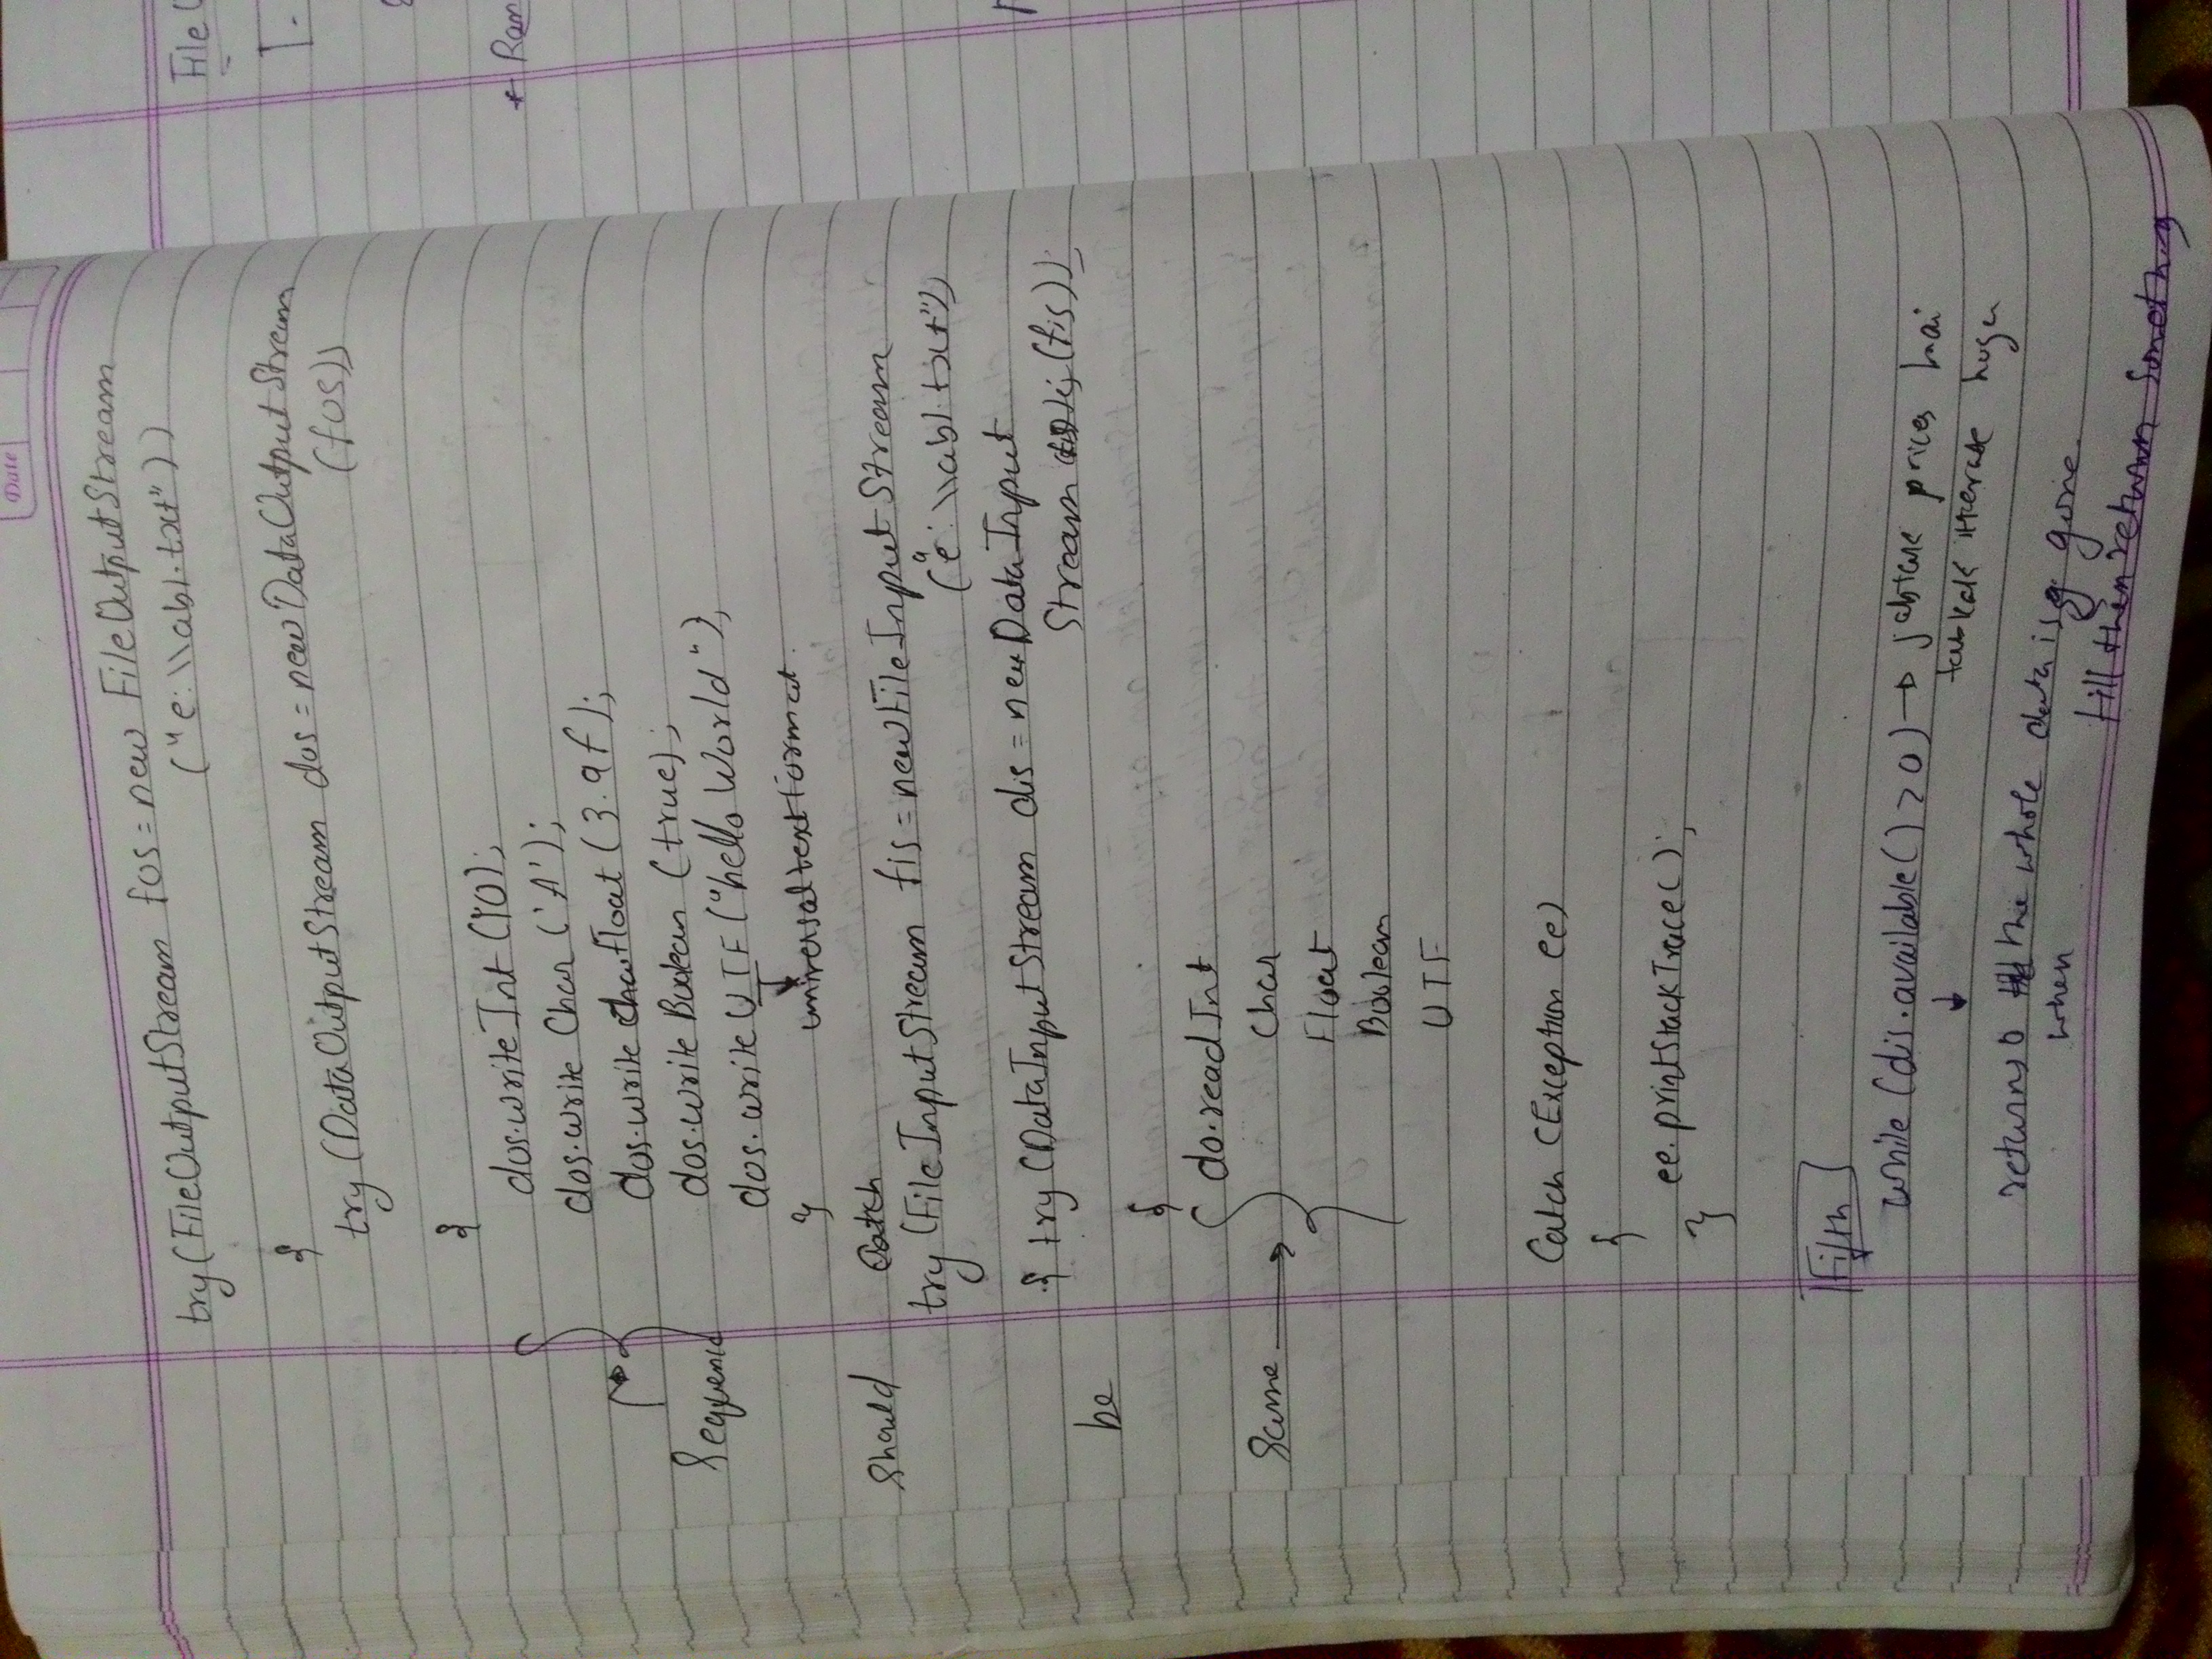 Date
try(FileOutputStream fos = new FileOutputStream
("e:\\ab1.txt"))
{
try (DataOutputStream dos = new DataOutputStream
(fos))
{
dos.writeInt (10);
dos.write Char ('A');
dos.write float (3.9f);
dos.write Boolean (true);
Sequence
dos.write UTF ("hello World");
} universal text format.
Should Catch
try (FileInputStream fis = new FileInputStream
("e:\\ab1.txt"))
{ try (DataInputStream dis = new DataInput
Stream (fis));
be
{
do.read Int
Char
Same
Float
Boolean
UTF
Catch (Exception ee)
{
ee.printStackTrace();
}
Fifth
while (dis.available() > 0) → jabtak prices hai
tabkak itterate hoga
returns 0 the whole data is gone.
when
till then return something
File
1.
* Ran